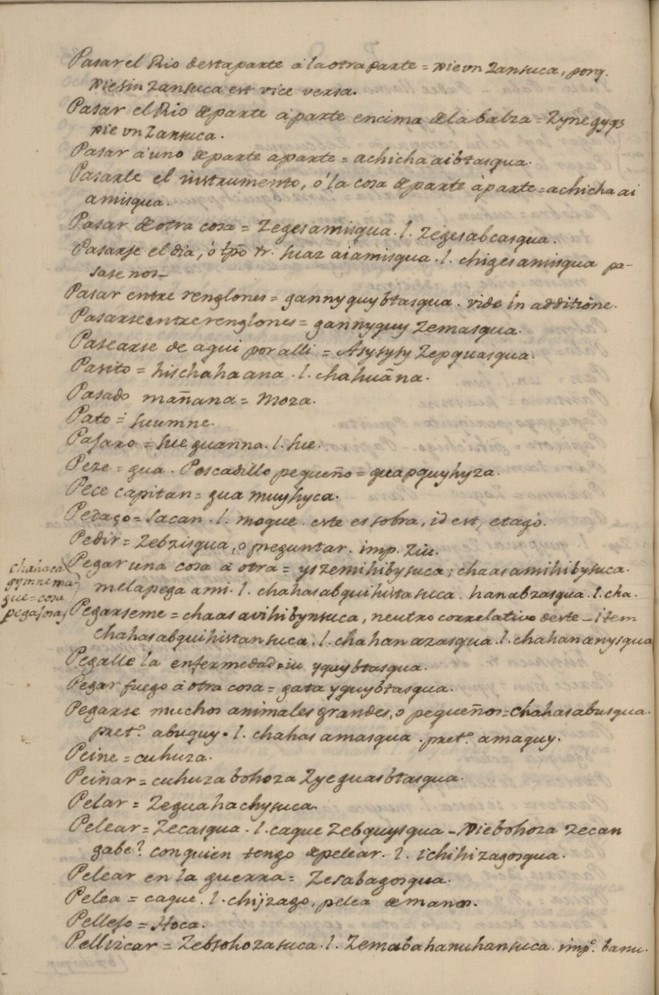 Pasar el Rio desta parte a la otra parte = sie vn Zansuca, porq.
sie sin Zansuca est vice versa.
Pasar el Rio de parte a parte encima de la balza = Zyne gyqs
sie vn Zansuca.
Pasar a uno de parte a parte = achicha ai btasqua.
Pasarle el instrumento, o la cosa de parte a parte = achicha ai
amisqua.
Pasar de otra cosa = Zegesamisqua. l. Zegesabcasqua.
Pasarse el dia, o tpō tr. suaz aiamisqua. l. chigesamisqua pa-
sasenos _
Pasar entre renglones = gannyquybtasqua. vide in additione.
Pasarse entre renglones = gannyquy Zemasqua.
Pasearse de aqui por alli = Asysysy Zepquasqua.
Pasito = hischahaana. l. chahuāna.
Pasado mañana = moza.
Pato = sumne.
Pajaro = sue guanna. l. sue.
Peze = gua. Pescadillo pequeño = guapquyhyza.
Pece capitan = gua muyhyca.
Pedaço = sacan. l. mogue. este es sobra, id est, etaqo.
Pedir = Zebzisqua, o preguntar. imp. Ziu.
Pegar una cosa a otra = yszemihibysuca; chaasamihibysuca.
melapega ami. l. chahasabquihistasuca. hanabzasqua. l. cha.
chahacā
gymne ma-
gue = cosa
pegajosa
Pegarseme = chaas avihibynsuca, neutro correlativo deste _ Item
chahasabquihistansuca. l. chahanazasqua. l. chahananysqua
Pegalle la enfermedad = iu yquybtasqua.
Pegar fuego a otra cosa = gata yquybtasqua.
Pegarse muchos animales grandes, o pequeños = chahasabusqua.
pret.º abuquy. l. chahas amasqua. pret.º amaquy.
Peine = cuhuza.
Peinar = cuhuza bohoza Zyeguasbtasqua.
Pelar = Zeguahachysuca
Pelear = Zecasqua. l. caque Zebquysqua _ sie bohoza Zecan
gabe? con quien tengo de pelear. l. ichihizagosqua.
Pelear en la guerra = Zesabagosqua.
Pelea = caque. l. chijzago, pelea de manos.
Pellejo = Hoca.
Pellizcar = Zebsohozasuca. l. Zemabahanuhansuca. imp.º banu.